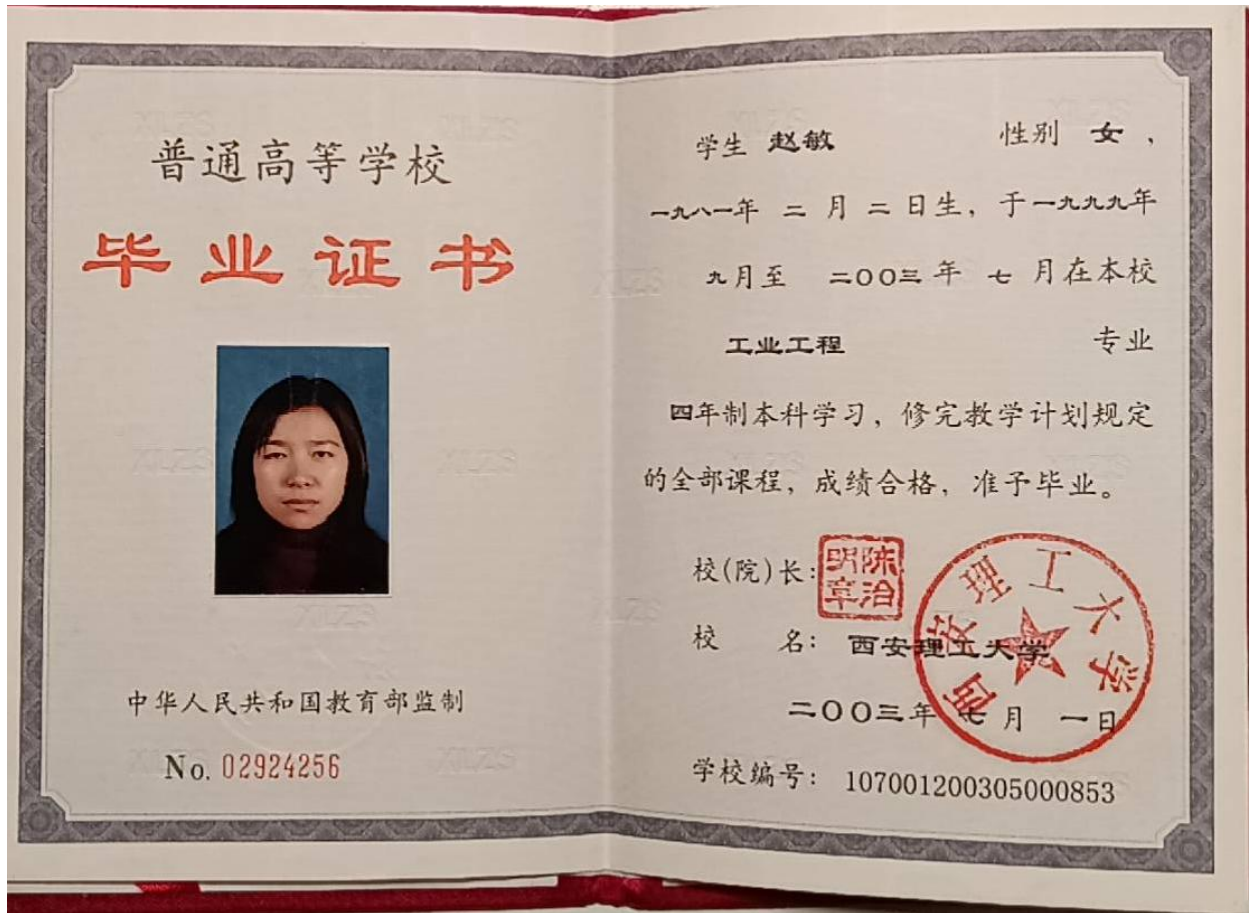 普通高等学校
毕业证书
中华人民共和国教育部监制
No. 02924256
学生 赵敏 性别 女，
一九八一年 二 月 二 日生，于一九九九年
九月至 二〇〇三 年 七 月在本校
工业工程 专业
四年制本科学习，修完教学计划规定
的全部课程，成绩合格，准予毕业。
校(院)长：
陈治明章
校 名： 西安理工大学
西安理工大学
二〇〇三年 七 月 一日
学校编号： 107001200305000853